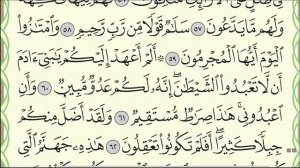 وَلَهُم مَّا يَدَّعُونَ ٥٧ سَلَٰمٌ قَوْلًا مِّن رَّبٍّ رَّحِيمٍ ٥٨ وَٱمْتَٰزُوا۟
ٱلْيَوْمَ أَيُّهَا ٱلْمُجْرِمُونَ ٥٩ ۞ أَلَمْ أَعْهَدْ إِلَيْكُمْ يَٰبَنِىٓ ءَادَمَ
أَن لَّا تَعْبُدُوا۟ ٱلشَّيْطَٰنَ ۖ إِنَّهُۥ لَكُمْ عَدُوٌّ مُّبِينٌ ٦٠ وَأَنِ
ٱعْبُدُونِى ۚ هَٰذَا صِرَٰطٌ مُّسْتَقِيمٌ ٦١ وَلَقَدْ أَضَلَّ مِنكُمْ
جِبِلًّا كَثِيرًا ۖ أَفَلَمْ تَكُونُوا۟ تَعْقِلُونَ ٦٢ هَٰذِهِۦ جَهَنَّمُ ٱلَّتِى